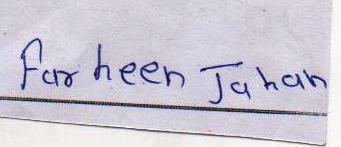 Farheen Jahan